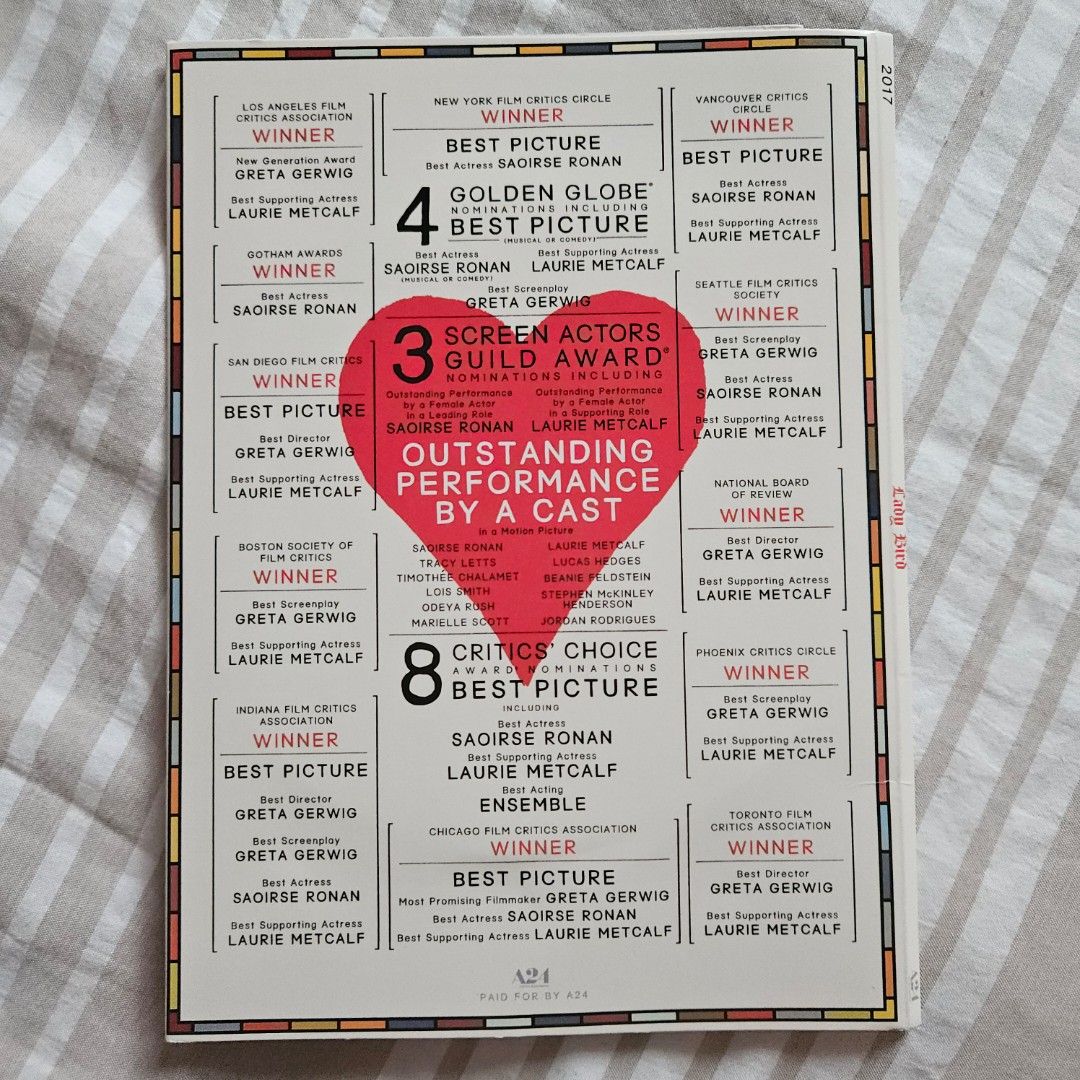 LOS ANGELES FILM
CRITICS ASSOCIATION
WINNER
New Generation Award
GRETA GERWIG
Best Supporting Actress
LAURIE METCALF
GOTHAM AWARDS
WINNER
Best Actress
SAOIRSE RONAN
SAN DIEGO FILM CRITICS
WINNER
BEST PICTURE
Best Director
GRETA GERWIG
Best Supporting Actress
LAURIE METCALF
BOSTON SOCIETY OF
FILM CRITICS
WINNER
Best Screenplay
GRETA GERWIG
Best Supporting Actress
LAURIE METCALF
INDIANA FILM CRITICS
ASSOCIATION
WINNER
BEST PICTURE
Best Director
GRETA GERWIG
Best Screenplay
GRETA GERWIG
Best Actress
SAOIRSE RONAN
Best Supporting Actress
LAURIE METCALF
NEW YORK FILM CRITICS CIRCLE
WINNER
BEST PICTURE
Best Actress SAOIRSE RONAN
4 GOLDEN GLOBE®
NOMINATIONS INCLUDING
BEST PICTURE
(MUSICAL OR COMEDY)
Best Actress
SAOIRSE RONAN
(MUSICAL OR COMEDY)
Best Supporting Actress
LAURIE METCALF
Best Screenplay
GRETA GERWIG
3 SCREEN ACTORS
GUILD AWARD®
NOMINATIONS INCLUDING
Outstanding Performance
by a Female Actor
in a Leading Role
SAOIRSE RONAN
Outstanding Performance
by a Female Actor
in a Supporting Role
LAURIE METCALF
OUTSTANDING
PERFORMANCE
BY A CAST
in a Motion Picture
SAOIRSE RONAN
TRACY LETTS
TIMOTHÉE CHALAMET
LOIS SMITH
ODEYA RUSH
MARIELLE SCOTT
LAURIE METCALF
LUCAS HEDGES
BEANIE FELDSTEIN
STEPHEN McKINLEY
HENDERSON
JORDAN RODRIGUES
8 CRITICS' CHOICE
AWARD® NOMINATIONS
BEST PICTURE
INCLUDING
Best Actress
SAOIRSE RONAN
Best Supporting Actress
LAURIE METCALF
Best Acting
ENSEMBLE
CHICAGO FILM CRITICS ASSOCIATION
WINNER
BEST PICTURE
Most Promising Filmmaker GRETA GERWIG
Best Actress SAOIRSE RONAN
Best Supporting Actress LAURIE METCALF
VANCOUVER CRITICS
CIRCLE
WINNER
BEST PICTURE
Best Actress
SAOIRSE RONAN
Best Supporting Actress
LAURIE METCALF
SEATTLE FILM CRITICS
SOCIETY
WINNER
Best Screenplay
GRETA GERWIG
Best Actress
SAOIRSE RONAN
Best Supporting Actress
LAURIE METCALF
NATIONAL BOARD
OF REVIEW
WINNER
Best Director
GRETA GERWIG
Best Supporting Actress
LAURIE METCALF
PHOENIX CRITICS CIRCLE
WINNER
Best Screenplay
GRETA GERWIG
Best Supporting Actress
LAURIE METCALF
TORONTO FILM
CRITICS ASSOCIATION
WINNER
Best Director
GRETA GERWIG
Best Supporting Actress
LAURIE METCALF
A24
PAID FOR BY A24
2017
Lady Bird
A24